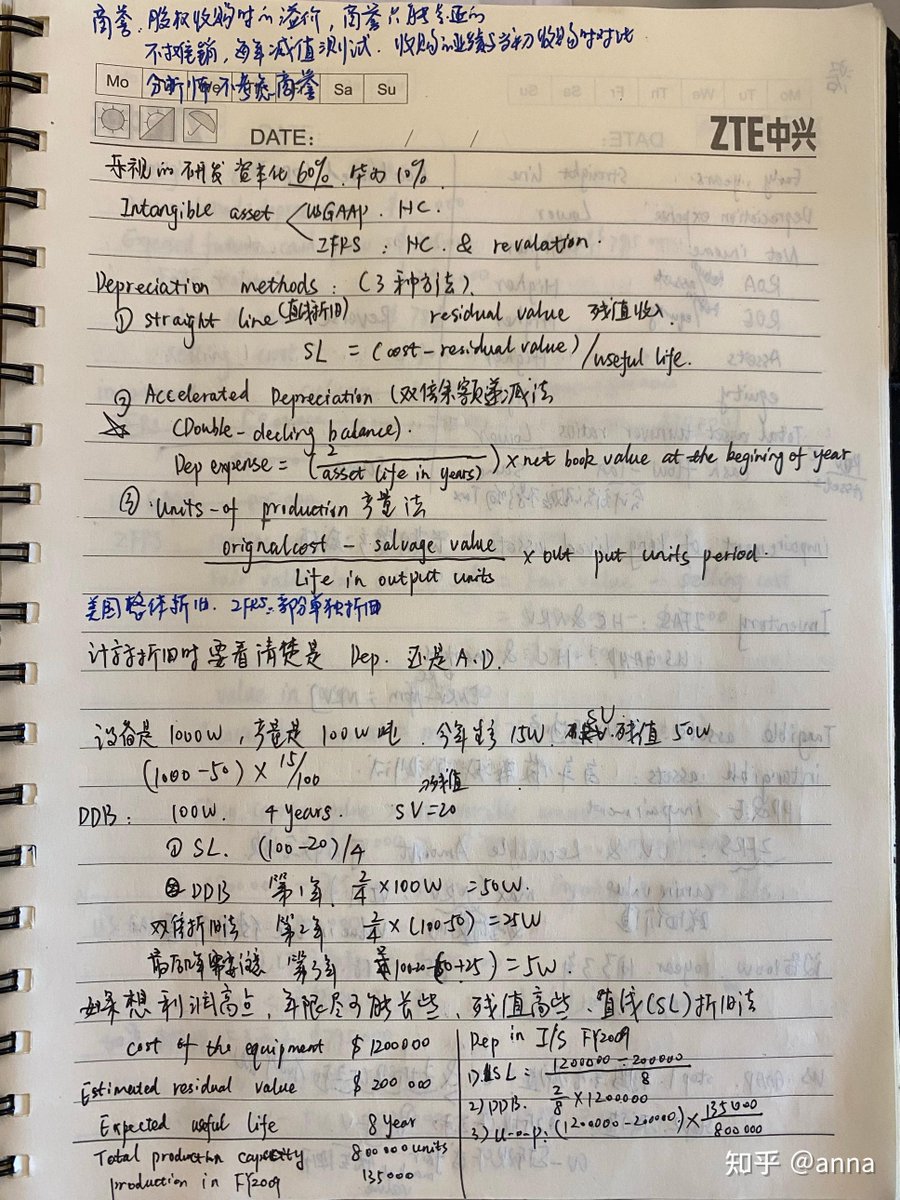 商誉:股权收购时的溢价,商誉只能是正的
不摊销,每年减值测试.收购的业绩与当初收购时对比
Mo 分析师不考虑商誉 Sa Su
DATE: / / ZTE中兴
乐视的研发资本化60%.华为10%
Intangible asset
USGAAP. HC.
IFRS: HC. & revalation.
Depreciation methods: (3种方法).
① straight line (直线折旧) residual value 残值收入.
SL = (cost-residual value)/useful life.
② Accelerated Depreciation (双倍余额递减法
(Double-decling balance).
Dep expense = (2/asset life in years) × net book value at the begining of year
③ Units-of production 产量法
orignal cost - salvage value
× out put units period.
Life in output units
美国整体折旧. IFRS:部分单独折旧
计算折旧时要看清楚是 Dep. 还是A.D.
设备是1000W,产量是100W吨.今年生产15W. SV 残值50W
(1000-50) × 15/100
DDB: 100W. 4 years. SV=20 残值
① SL. (100-20)/4
② DDB 第1年 2/4 × 100W = 50W.
双倍折旧法 第2年 2/4 × (100-50) = 25W
最后 年需注意 第3年 100-20-(50+25) = 5W.
如果想利润高点,年限尽可能长些,残值高些.直线(SL)折旧法
cost of the equipment $ 1200000
Estimated residual value $ 200 000
Expected useful life 8 year
Total production capacity 800000 units
production in FY2009 135000
Dep in I/S FY2009
1) SL: 1200000 - 200000 / 8
2) DDB. 2/8 × 1200000
3) u-o-p: (1200000-200000) × 135000/800000
知乎 @anna